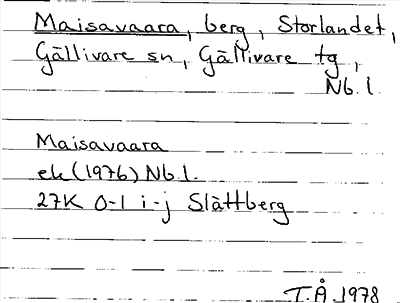 Maisavaara, berg, Storlandet,
Gällivare sn, Gällivare tg,
Nb.l.
Maisavaara
ek (1976) Nb.l.
27K 0-1 i-j Slättberg
T.Å. 1978